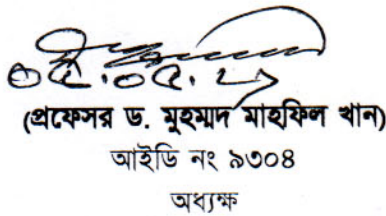 ০৫.০৫.২১
(প্রফেসর ড. মুহম্মদ মাহফিল খান)
আইডি নং ৯৩০৪
অধ্যক্ষ